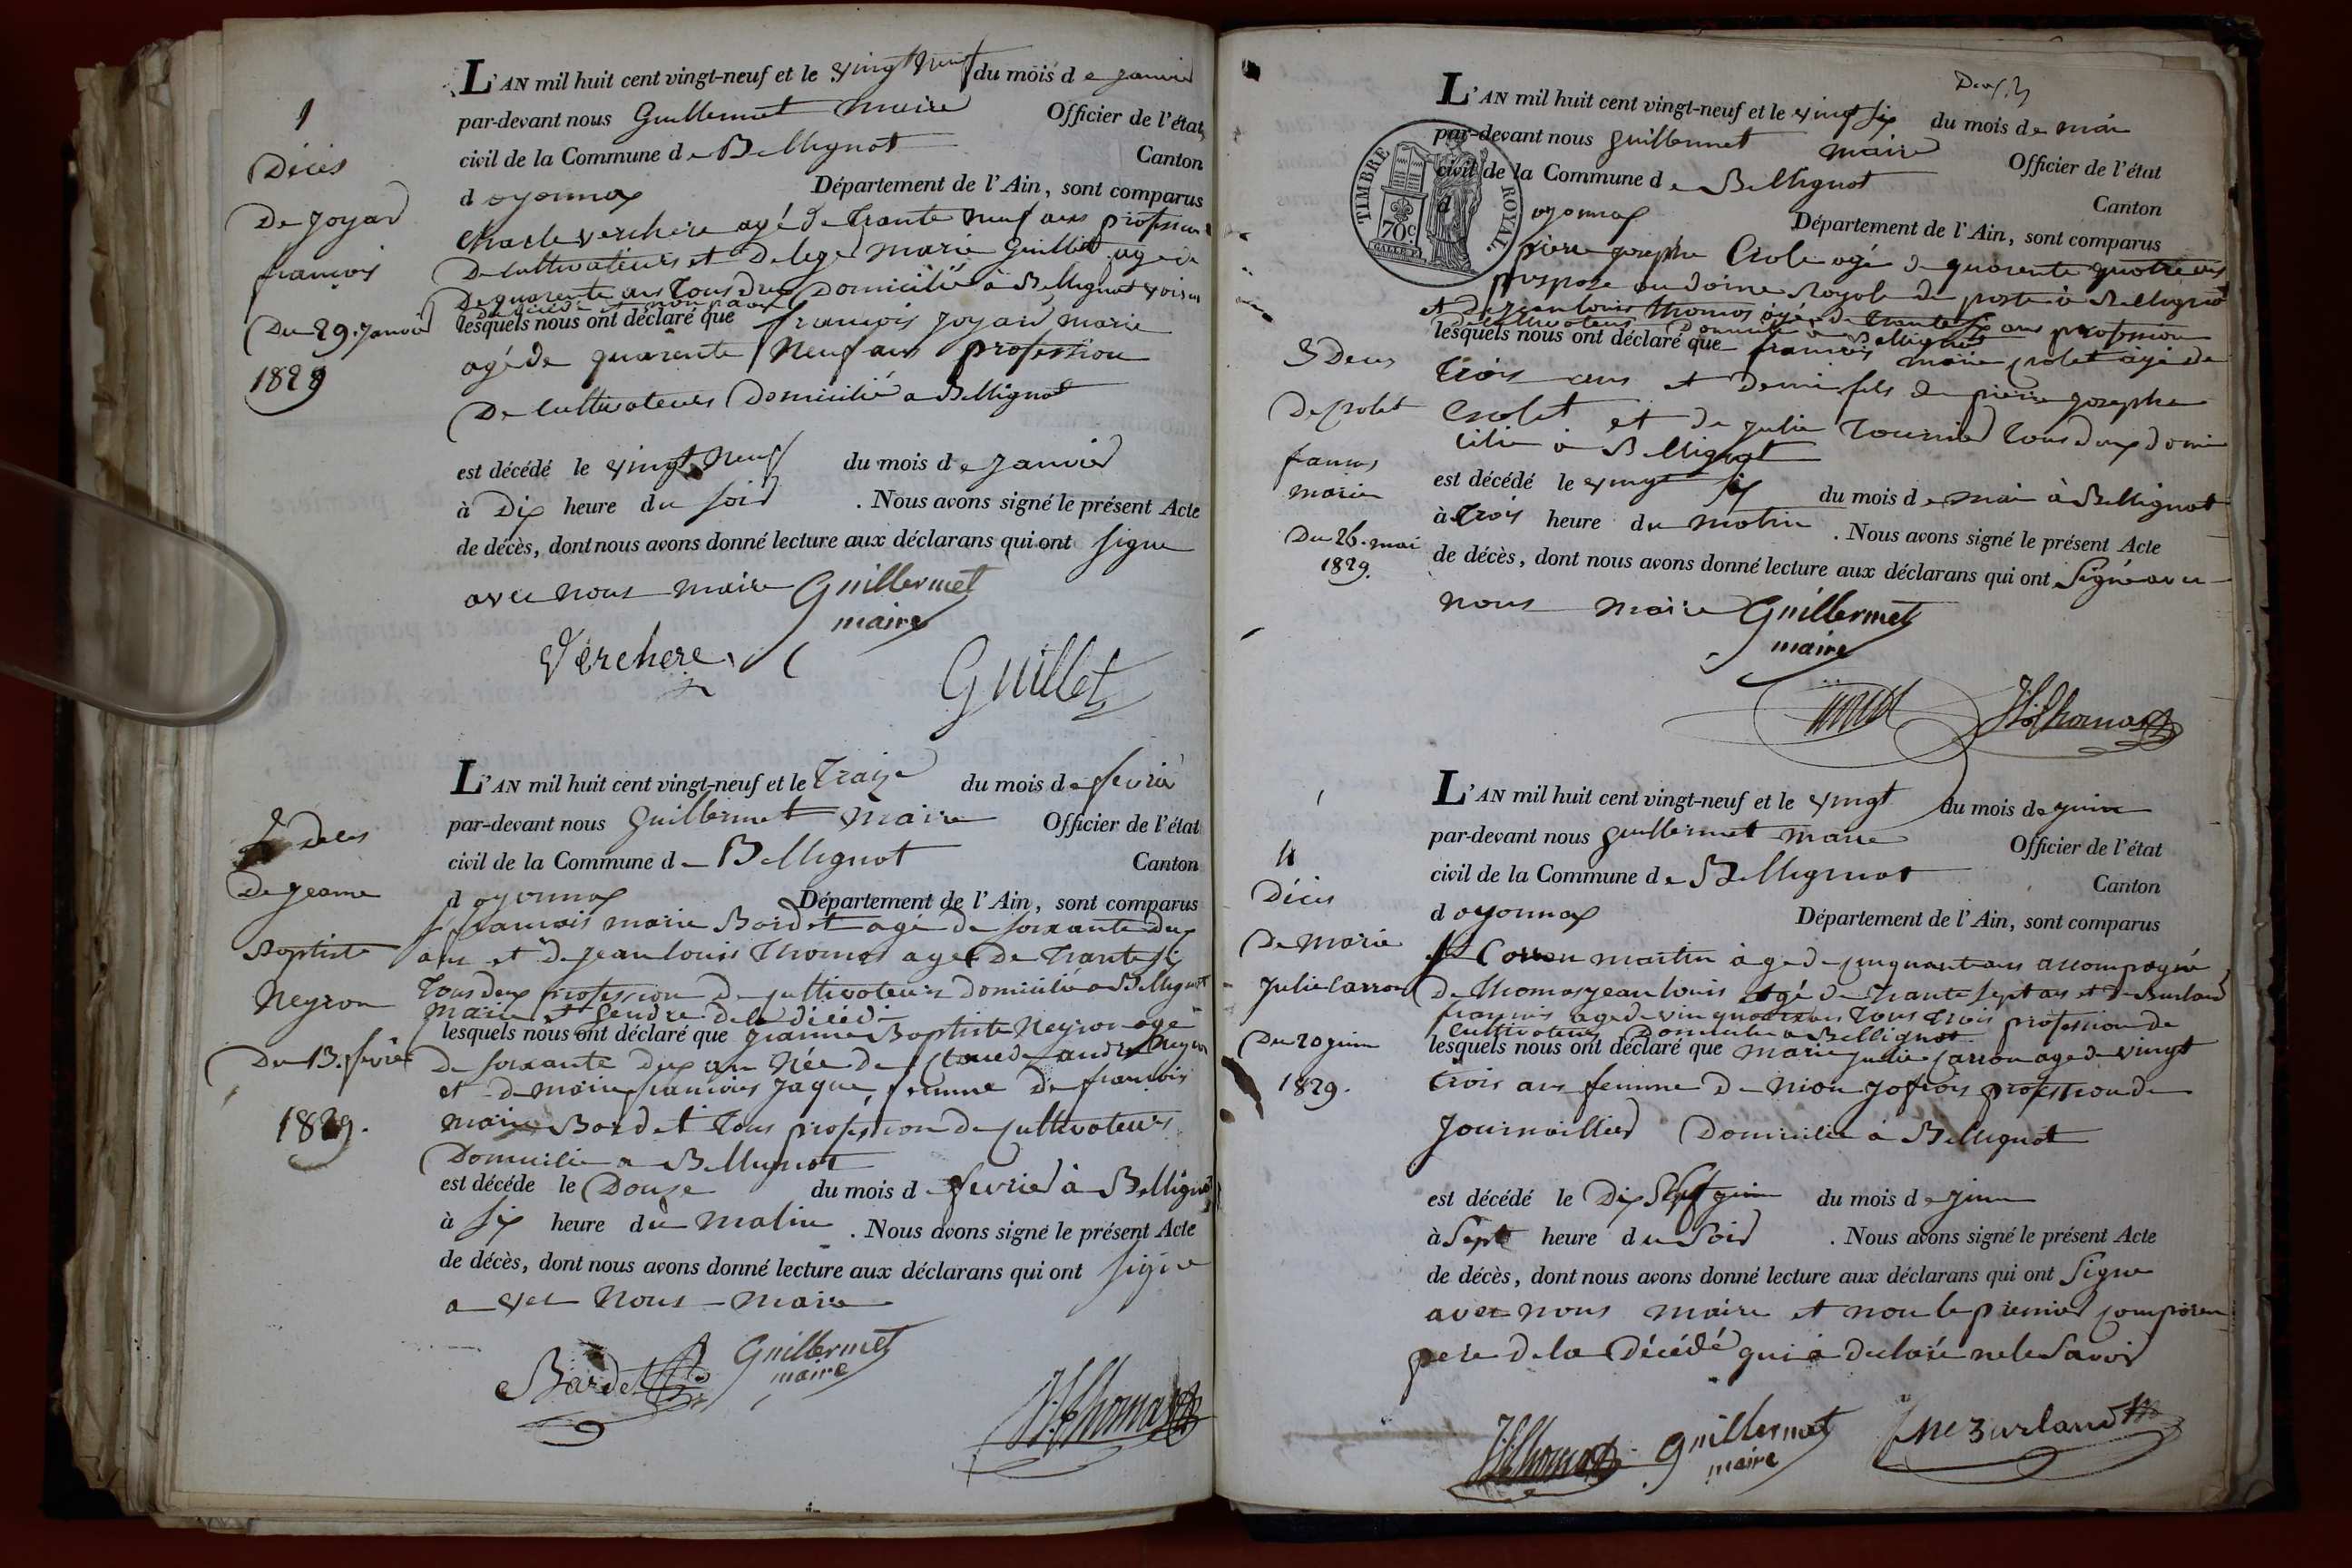 1
Décès
De Joyard
françois
Du 29. Janvier
1829
L'AN mil huit cent vingt-neuf et le vingt neuf du mois de janvier
par-devant nous Guillermet maire Officier de l'état
civil de la Commune de Bellignat Canton
d oyonnax Département de l'Ain, sont comparus
Charle verchere agé de trante neuf ans profession
De cultivateurs et De lege marie Guillet agé de
De quarente ans tous deux Domicilié à Bellignat voisin
lesquels nous ont déclaré que françois joyard marie
agé de quarente neuf ans profession
De cultivateurs Domicilié a Bellignat
est décédé le vingt neuf du mois de janvier
à Dix heure du soir . Nous avons signé le présent Acte
de décès, dont nous avons donné lecture aux déclarans qui ont signe
avec nous maire Guillermet
maire
Verchere
Guillet
2 Deces
De jeanne
Baptiste
Neyron
Du 13. fevrier
1829.
L'AN mil huit cent vingt-neuf et le Traize du mois de fevrier
par-devant nous Guillermet maire Officier de l'état
civil de la Commune de Bellignat Canton
d oyonnax Département de l'Ain, sont comparus
francois marie Bordet agé de soixante deux
ans et De jean louis Thomas age De Trante six
Tous deux profession De cultivateurs domicilié a Bellignat
lesquels nous ont déclaré que jeanne Baptiste Neyron age
De soixante deux an Née de andre Neyron
et De marie francoise jaque, femme De francois
marie Bordet tous profession De cultivateurs
Domicilié a Bellignat
est décéde le Douze du mois de fevrier à Bellignat
à six heure du matin . Nous avons signé le présent Acte
de décès, dont nous avons donné lecture aux déclarans qui ont signe
avec Nous maire
Bordet
Guillermet
maire
JL Thomas
TIMBRE ROYAL
70c
L'AN mil huit cent vingt-neuf et le vingt six du mois de mai
par-devant nous guillermet maire Officier de l'état
civil de la Commune de Bellignat Canton
d oyonnax Département de l'Ain, sont comparus
piere josephe Crolet agé de quarente quatre ans
prepose au doine Royale de poste à Bellignat
et de jean louis Thomas agé de trante six ans profession
De cultivateurs Domicilié a Bellignat
lesquels nous ont déclaré que francois marie crolet agé de
trois ans et demi fils de pierre josephe
Crolet et de julie Tournier tous deux domi
cilié à Bellignat
est décédé le vingt six du mois de mai à Bellignat
à trois heure du matin . Nous avons signé le présent Acte
de décès, dont nous avons donné lecture aux déclarans qui ont signé avec
nous maire Guillermet
maire
JL Thomas
3 Deces
De crolet
francois
marie
Du 26. mai
1829.
4
Décès
De marie
Julie Carron
Du 20 juin
1829.
L'AN mil huit cent vingt-neuf et le vingt du mois de juin
par-devant nous guillermet maire Officier de l'état
civil de la Commune de Bellignat Canton
d oyonnax Département de l'Ain, sont comparus
Carron martin âgé de cinquante ans accompagné
De Thomas jean louis agé de trante sept ans et De Burland
françois age de ans tous trois profession de
cultivateurs Domicilié a Bellignat
lesquels nous ont déclaré que marie julie Carron age de vingt
trois ans femme De nion jofrois profession de
Journaillier Domicilié à Bellignat
est décédé le Dix Sept juin du mois de juin
à Sept heure du Soir . Nous avons signé le présent Acte
de décès, dont nous avons donné lecture aux déclarans qui ont Signe
avec nous maire et non le premier comparan
pere de la Décédé qui a declaré ne le Savoir
JL Thomas
guillermet
maire
Burland